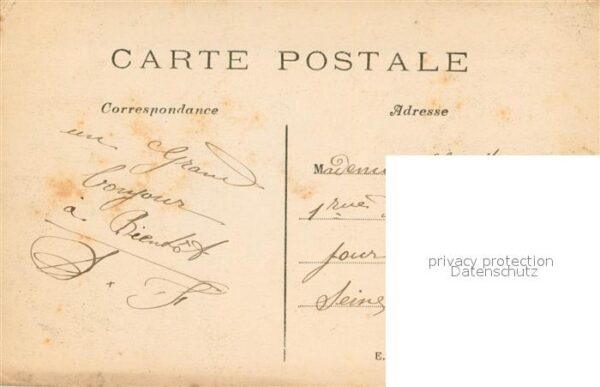 CARTE POSTALE
Correspondance
un Grand
bonjour
à Bientôt
Adresse
1 rue
Jour
Seine
E.
privacy protection
Datenschutz